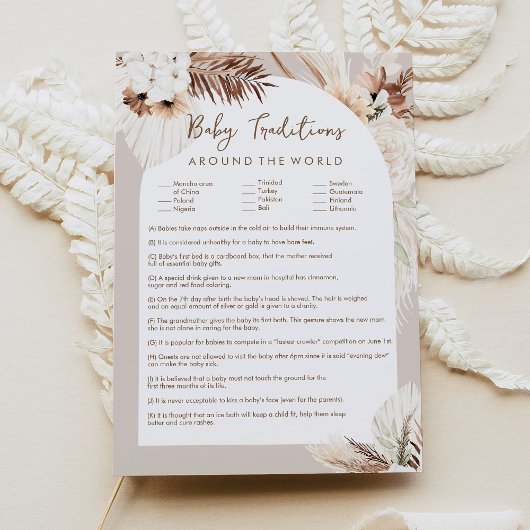 Baby Traditions
AROUND THE WORLD
___ Manchu area of China
___ Poland
___ Nigeria
___ Trinidad
___ Turkey
___ Pakistan
___ Bali
___ Sweden
___ Guatemala
___ Finland
___ Lithuania
(A) Babies take naps outside in the cold air to build their immune system.
(B) It is considered unhealthy for a baby to have bare feet.
(C) Baby's first bed is a cardboard box, that the mother received
full of essential baby gifts.
(D) A special drink given to a new mom in hospital has cinnamon,
sugar and red food coloring.
(E) On the 7th day after birth the baby's head is shaved. The hair is weighed
and an equal amount of silver or gold is given to a charity.
(F) The grandmother gives the baby its first bath. This gesture shows the new mom
she is not alone in caring for the baby.
(G) It is popular for babies to compete in a "fastest crawler" competition on June 1st.
(H) Guests are not allowed to visit the baby after 6pm since it is said "evening dew"
can make the baby sick.
(I) It is believed that a baby must not touch the ground for the
first three months of its life.
(J) It is never acceptable to kiss a baby's face (even for the parents).
(K) It is thought that an ice bath will keep a child fit, help them sleep
better and cure rashes.